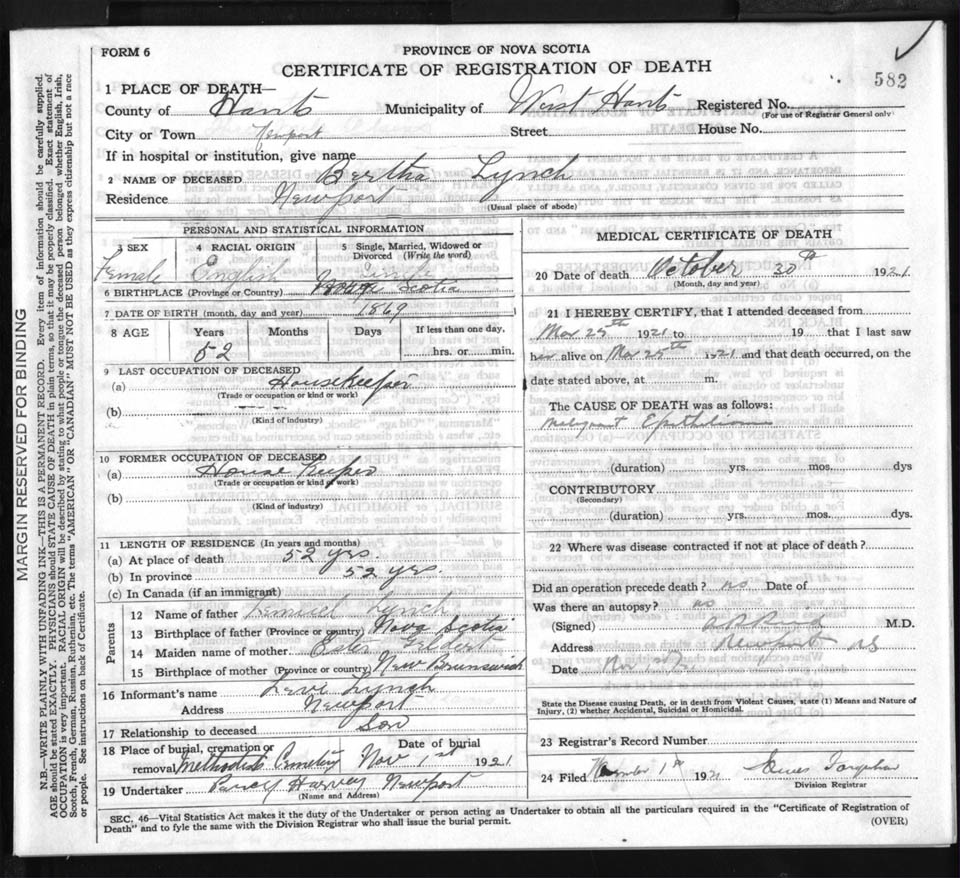 FORM 6
PROVINCE OF NOVA SCOTIA
CERTIFICATE OF REGISTRATION OF DEATH
582
1 PLACE OF DEATH—
County of Hants Municipality of West Hants Registered No.
(For use of Registrar General only)
City or Town Newport Street House No.
If in hospital or institution, give name
2 NAME OF DECEASED Bertha Lynch
Residence Newport
(Usual place of abode)
PERSONAL AND STATISTICAL INFORMATION
3 SEX 4 RACIAL ORIGIN 5 Single, Married, Widowed or Divorced (Write the word)
Female English Single
6 BIRTHPLACE (Province or Country) Nova Scotia
7 DATE OF BIRTH (month, day and year) 1869
8 AGE Years Months Days If less than one day,
52 hrs. or min.
9 LAST OCCUPATION OF DECEASED
(a) Housekeeper
(Trade or occupation or kind or work)
(b)
(Kind of industry)
10 FORMER OCCUPATION OF DECEASED
(a) House Keeper
(Trade or occupation or kind of work)
(b)
(Kind of industry)
11 LENGTH OF RESIDENCE (In years and months)
(a) At place of death 52 yrs.
(b) In province 52 yrs.
(c) In Canada (if an immigrant)
Parents
12 Name of father Lemuel Lynch
13 Birthplace of father (Province or country) Nova Scotia
14 Maiden name of mother
15 Birthplace of mother (Province or country) New Brunswick
16 Informant's name Lynch
Address Newport
17 Relationship to deceased Son
18 Place of burial, cremation or Date of burial
removal Methodist Cemetery Nov 1st 1921
19 Undertaker Percy Harvey Newport
(Name and Address)
MEDICAL CERTIFICATE OF DEATH
20 Date of death October 30th 1921
(Month, day and year)
21 I HEREBY CERTIFY, that I attended deceased from
Mar 25th 1921 to 19 that I last saw
her alive on Mar 25th 1921 and that death occurred, on the
date stated above, at m.
The CAUSE OF DEATH was as follows:
Malignant Epithelioma
(duration) yrs. mos. dys
CONTRIBUTORY
(Secondary)
(duration) yrs. mos. dys.
22 Where was disease contracted if not at place of death?
Did an operation precede death? no Date of
Was there an autopsy? no
(Signed) M.D.
Address Newport NS
Date Nov
State the Disease causing Death, or in death from Violent Causes, state (1) Means and Nature of
Injury, (2) whether Accidental, Suicidal or Homicidal.
23 Registrar's Record Number
24 Filed November 1st 1921 James
Division Registrar
SEC. 46—Vital Statistics Act makes it the duty of the Undertaker or person acting as Undertaker to obtain all the particulars required in the "Certificate of Registration of
Death" and to fyle the same with the Division Registrar who shall issue the burial permit.
(OVER)
MARGIN RESERVED FOR BINDING
N.B.—WRITE PLAINLY WITH UNFADING INK—THIS IS A PERMANENT RECORD. Every item of information should be carefully supplied.
AGE should be stated EXACTLY. PHYSICIANS should STATE CAUSE OF DEATH in plain terms, so that it may be properly classified. Exact statement of
OCCUPATION is very important. RACIAL ORIGIN will be described by stating to what people or tongue the deceased person belonged whether English, Irish,
Scotch, French, German, Russian, Ruthenian, etc. The terms "AMERICAN" OR "CANADIAN" MUST NOT BE USED as they express citizenship but not a race
or people. See instructions on back of Certificate.